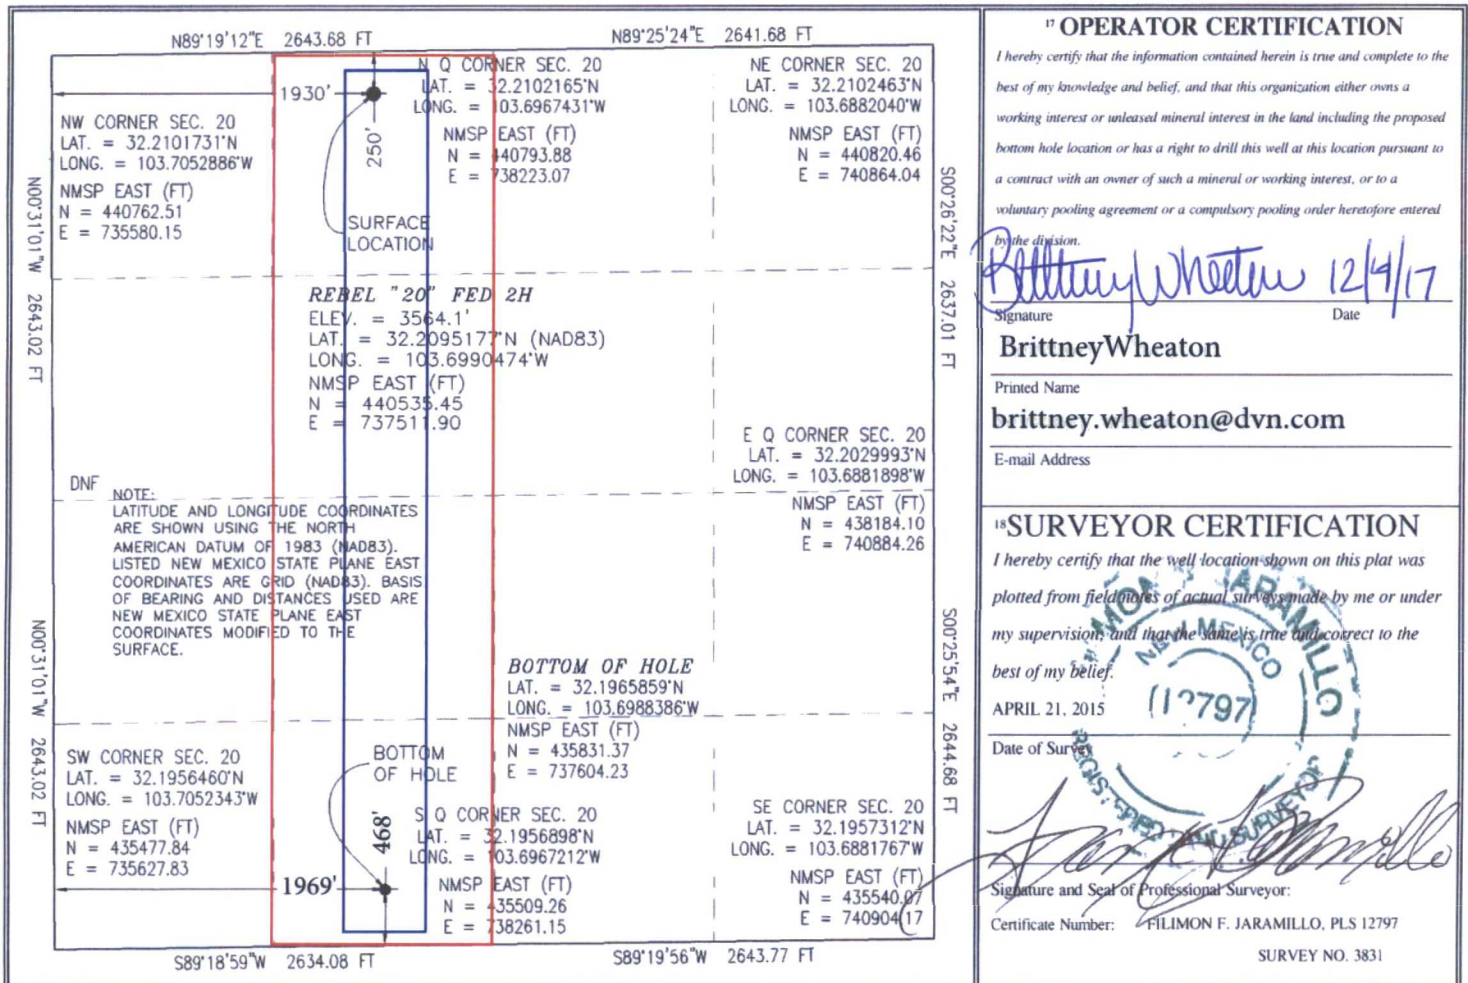 N89°19'12"E 2643.68 FT
N89°25'24"E 2641.68 FT
N Q CORNER SEC. 20
LAT. = 32.2102165°N
LONG. = 103.6967431°W
NMSP EAST (FT)
N = 440793.88
E = 738223.07
NE CORNER SEC. 20
LAT. = 32.2102463°N
LONG. = 103.6882040°W
NMSP EAST (FT)
N = 440820.46
E = 740864.04
1930'
250'
NW CORNER SEC. 20
LAT. = 32.2101731°N
LONG. = 103.7052886°W
NMSP EAST (FT)
N = 440762.51
E = 735580.15
SURFACE
LOCATION
N00°31'01"W 2643.02 FT
S00°26'22"E 2637.01 FT
REBEL "20" FED 2H
ELEV. = 3564.1'
LAT. = 32.2095177°N (NAD83)
LONG. = 103.6990474°W
NMSP EAST (FT)
N = 440535.45
E = 737511.90
E Q CORNER SEC. 20
LAT. = 32.2029993°N
LONG. = 103.6881898°W
NMSP EAST (FT)
N = 438184.10
E = 740884.26
DNF
NOTE:
LATITUDE AND LONGITUDE COORDINATES
ARE SHOWN USING THE NORTH
AMERICAN DATUM OF 1983 (NAD83).
LISTED NEW MEXICO STATE PLANE EAST
COORDINATES ARE GRID (NAD83). BASIS
OF BEARING AND DISTANCES USED ARE
NEW MEXICO STATE PLANE EAST
COORDINATES MODIFIED TO THE
SURFACE.
N00°31'01"W 2643.02 FT
S00°25'54"E 2644.68 FT
BOTTOM OF HOLE
LAT. = 32.1965859°N
LONG. = 103.6988386°W
NMSP EAST (FT)
N = 435831.37
E = 737604.23
SW CORNER SEC. 20
LAT. = 32.1956460°N
LONG. = 103.7052343°W
NMSP EAST (FT)
N = 435477.84
E = 735627.83
BOTTOM
OF HOLE
468'
1969'
S Q CORNER SEC. 20
LAT. = 32.1956898°N
LONG. = 103.6967212°W
NMSP EAST (FT)
N = 435509.26
E = 738261.15
SE CORNER SEC. 20
LAT. = 32.1957312°N
LONG. = 103.6881767°W
NMSP EAST (FT)
N = 435540.07
E = 740904.17
S89°18'59"W 2634.08 FT
S89°19'56"W 2643.77 FT
17 OPERATOR CERTIFICATION
I hereby certify that the information contained herein is true and complete to the
best of my knowledge and belief, and that this organization either owns a
working interest or unleased mineral interest in the land including the proposed
bottom hole location or has a right to drill this well at this location pursuant to
a contract with an owner of such a mineral or working interest, or to a
voluntary pooling agreement or a compulsory pooling order heretofore entered
by the division.
Brittney Wheaton 12/4/17
Signature Date
BrittneyWheaton
Printed Name
brittney.wheaton@dvn.com
E-mail Address
18 SURVEYOR CERTIFICATION
I hereby certify that the well location shown on this plat was
plotted from field notes of actual surveys made by me or under
my supervision, and that the same is true and correct to the
best of my belief.
APRIL 21, 2015
Date of Survey
JARAMILLO
NEW MEXICO
SURVEYOR
Signature and Seal of Professional Surveyor:
Certificate Number: FILIMON F. JARAMILLO, PLS 12797
SURVEY NO. 3831